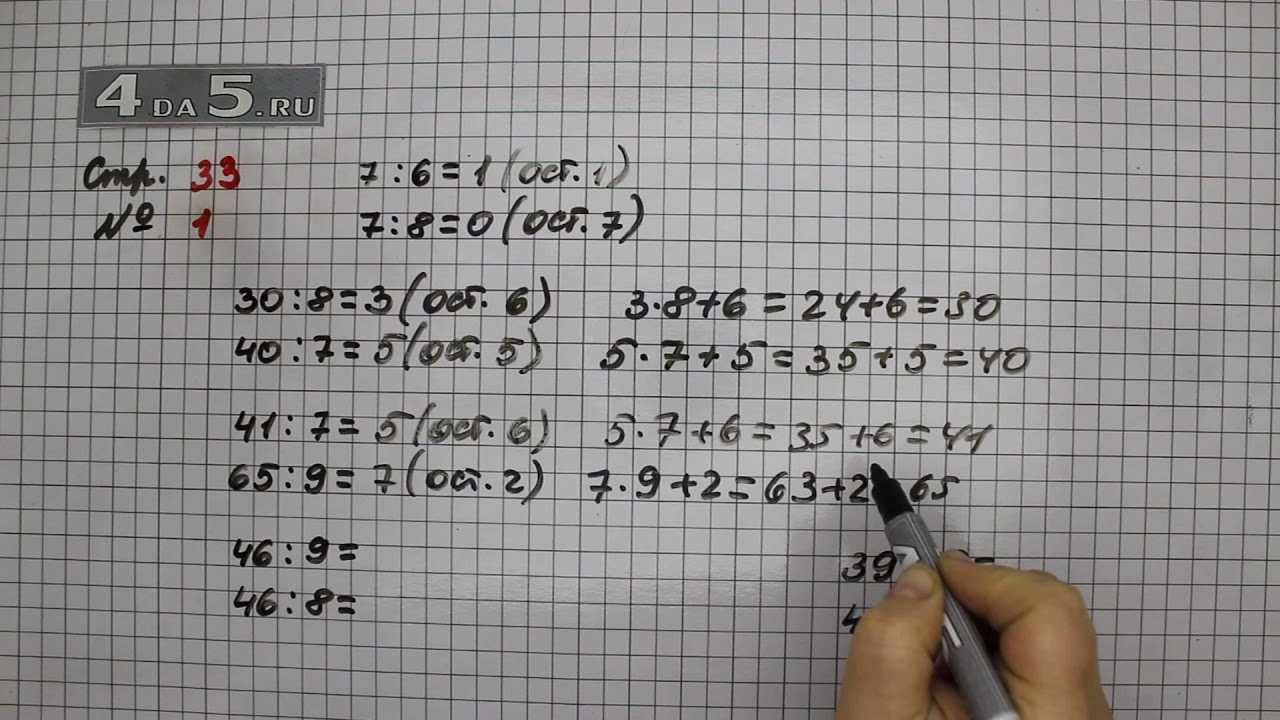 4DA5.RU
Стр. 33
№ 1
7 : 6 = 1 (ост. 1)
7 : 8 = 0 (ост. 7)
30 : 8 = 3 (ост. 6) 3 · 8 + 6 = 24 + 6 = 30
40 : 7 = 5 (ост. 5) 5 · 7 + 5 = 35 + 5 = 40
41 : 7 = 5 (ост. 6) 5 · 7 + 6 = 35 + 6 = 41
65 : 9 = 7 (ост. 2) 7 · 9 + 2 = 63 + 2 65
46 : 9 =
46 : 8 =
39 =
4